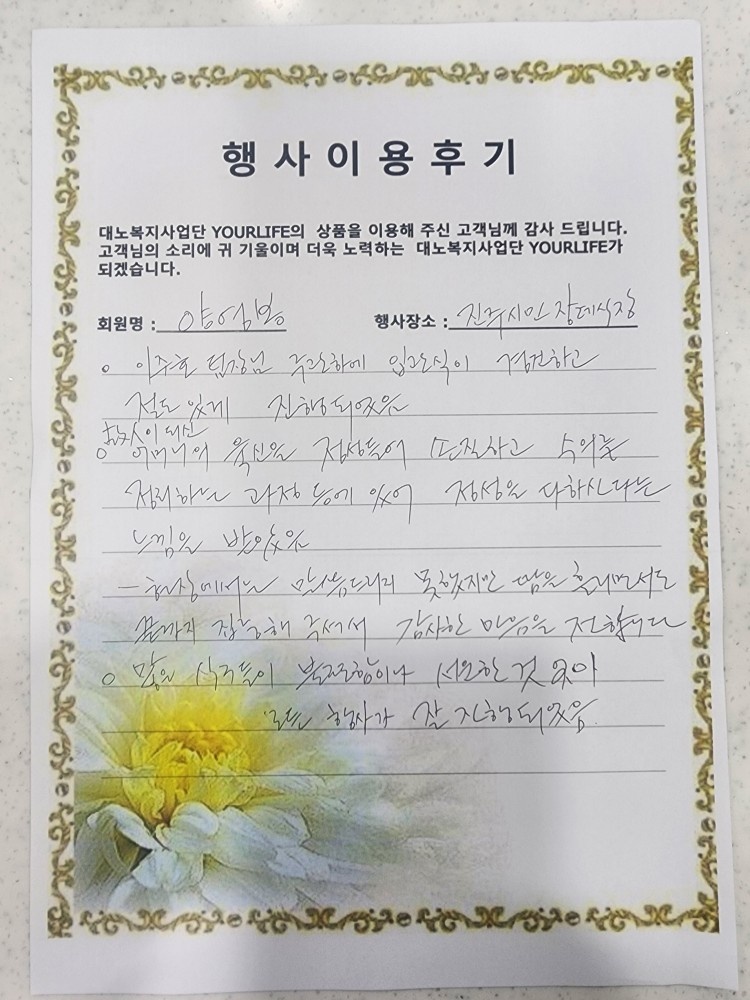 행사이용후기
대노복지사업단 YOURLIFE의 상품을 이용해 주신 고객님께 감사 드립니다.
고객님의 소리에 귀 기울이며 더욱 노력하는 대노복지사업단 YOURLIFE가
되겠습니다.
회원명 : 행사장소 : 진주시민장례식장
○ 이주호 팀장님 주관하에 입관식이 경건하고
절도 있게 진행되었음
고인이 되신
○ 어머니의 육신을 정성들여 손질하고 수의를
정리하는 과정 등에 있어 정성을 다하신다는
느낌을 받았음
- 현장에서는 말씀드리지 못했지만 땀을 흘리면서도
끝까지 집중해 주셔서 감사한 마음을 전합니다
○ 많은 식구들이 북적함이나 소요한 것 없이
모든 행사가 잘 진행되었음.